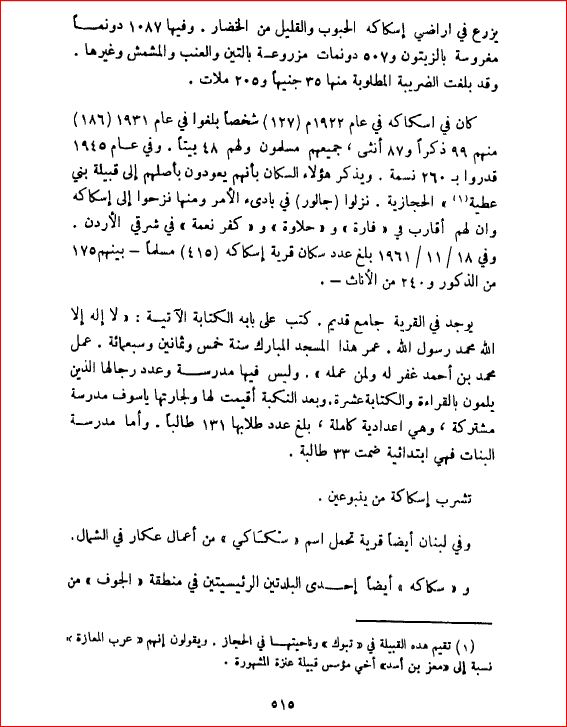 يزرع في اراضي إسكاكه الحبوب والقليل من الخضار . وفيها ١٠٨٧ دونمــاً
مغروسة بالزيتون و٥٠٧ دونمات مزروعة بالتين والعنب والمشمش وغيرها .
وقد بلغت الضريبة المطلوبة منها ٣٥ جنيهاً و٢٠٥ ملات .
كان في اسكاكه في عام ١٩٢٢م (١٢٧) شخصاً بلغوا في عام ١٩٣١ (١٨٦)
منهم ٩٩ ذكراً و٨٧ أنثى ، جميعهم مسلمون ولهم ٤٨ بيتاً . وفي عــام ١٩٤٥
قدروا بـ ٢٦٠ نسمة . ويذكر هؤلاء السكان بأنهم يعودون بأصلهم إلى قبيلة بني
عطية(١) الحجازية . نزلوا (جالور) في بادىء الأمر ومنها نزحوا إلى إسكاكه
وان لهم أقارب في « فارة » و « حلاوة » و « كفر نعمة » في شرقي الأردن .
وفي ١٨ / ١١ / ١٩٦١ بلغ عدد سكان قرية إسكاكه (٤١٥) مسلماً – بينهم ١٧٥
من الذكور و٢٤٠ من الأناث – .
يوجد في القرية جامع قديم . كتب على بابه الكتابة الآتيــة : « لا إله إلا
الله محمد رسول الله . عمر هذا المسجد المبارك سنة خمس وثمانين وسبعمائة . عمل
محمد بن أحمد غفر له ولمن عمله » . وليس فيها مدرســـة وعدد رجالها الذين
يلمون بالقراءة والكتابة عشرة. وبعد النكبة أقيمت لها ولجارتها ياسوف مدرسة
مشتركة ، وهي اعدادية كاملة ، بلغ عدد طلابها ١٣١ طالباً . وأما مدرسـة
البنات فهي ابتدائية ضمت ٣٣ طالبة .
تشرب إسكاكة من ينبوعين .
وفي لبنان أيضاً قرية تحمل اسم « سكـاكي » من أعمال عكار في الشمال.
و « سكاكه » أيضاً إحــدى البلدتين الرئيسيتين في منطقة « الجوف » من
(١) تقيم هده القبيلة في « تبوك » وناحيتهـا في الحجاز . ويقولون إنهم « عرب المعازة »
نسبة إلى «معز بن أسد» أخي مؤسس قبيلة عنزة المشهورة .
٥١٥